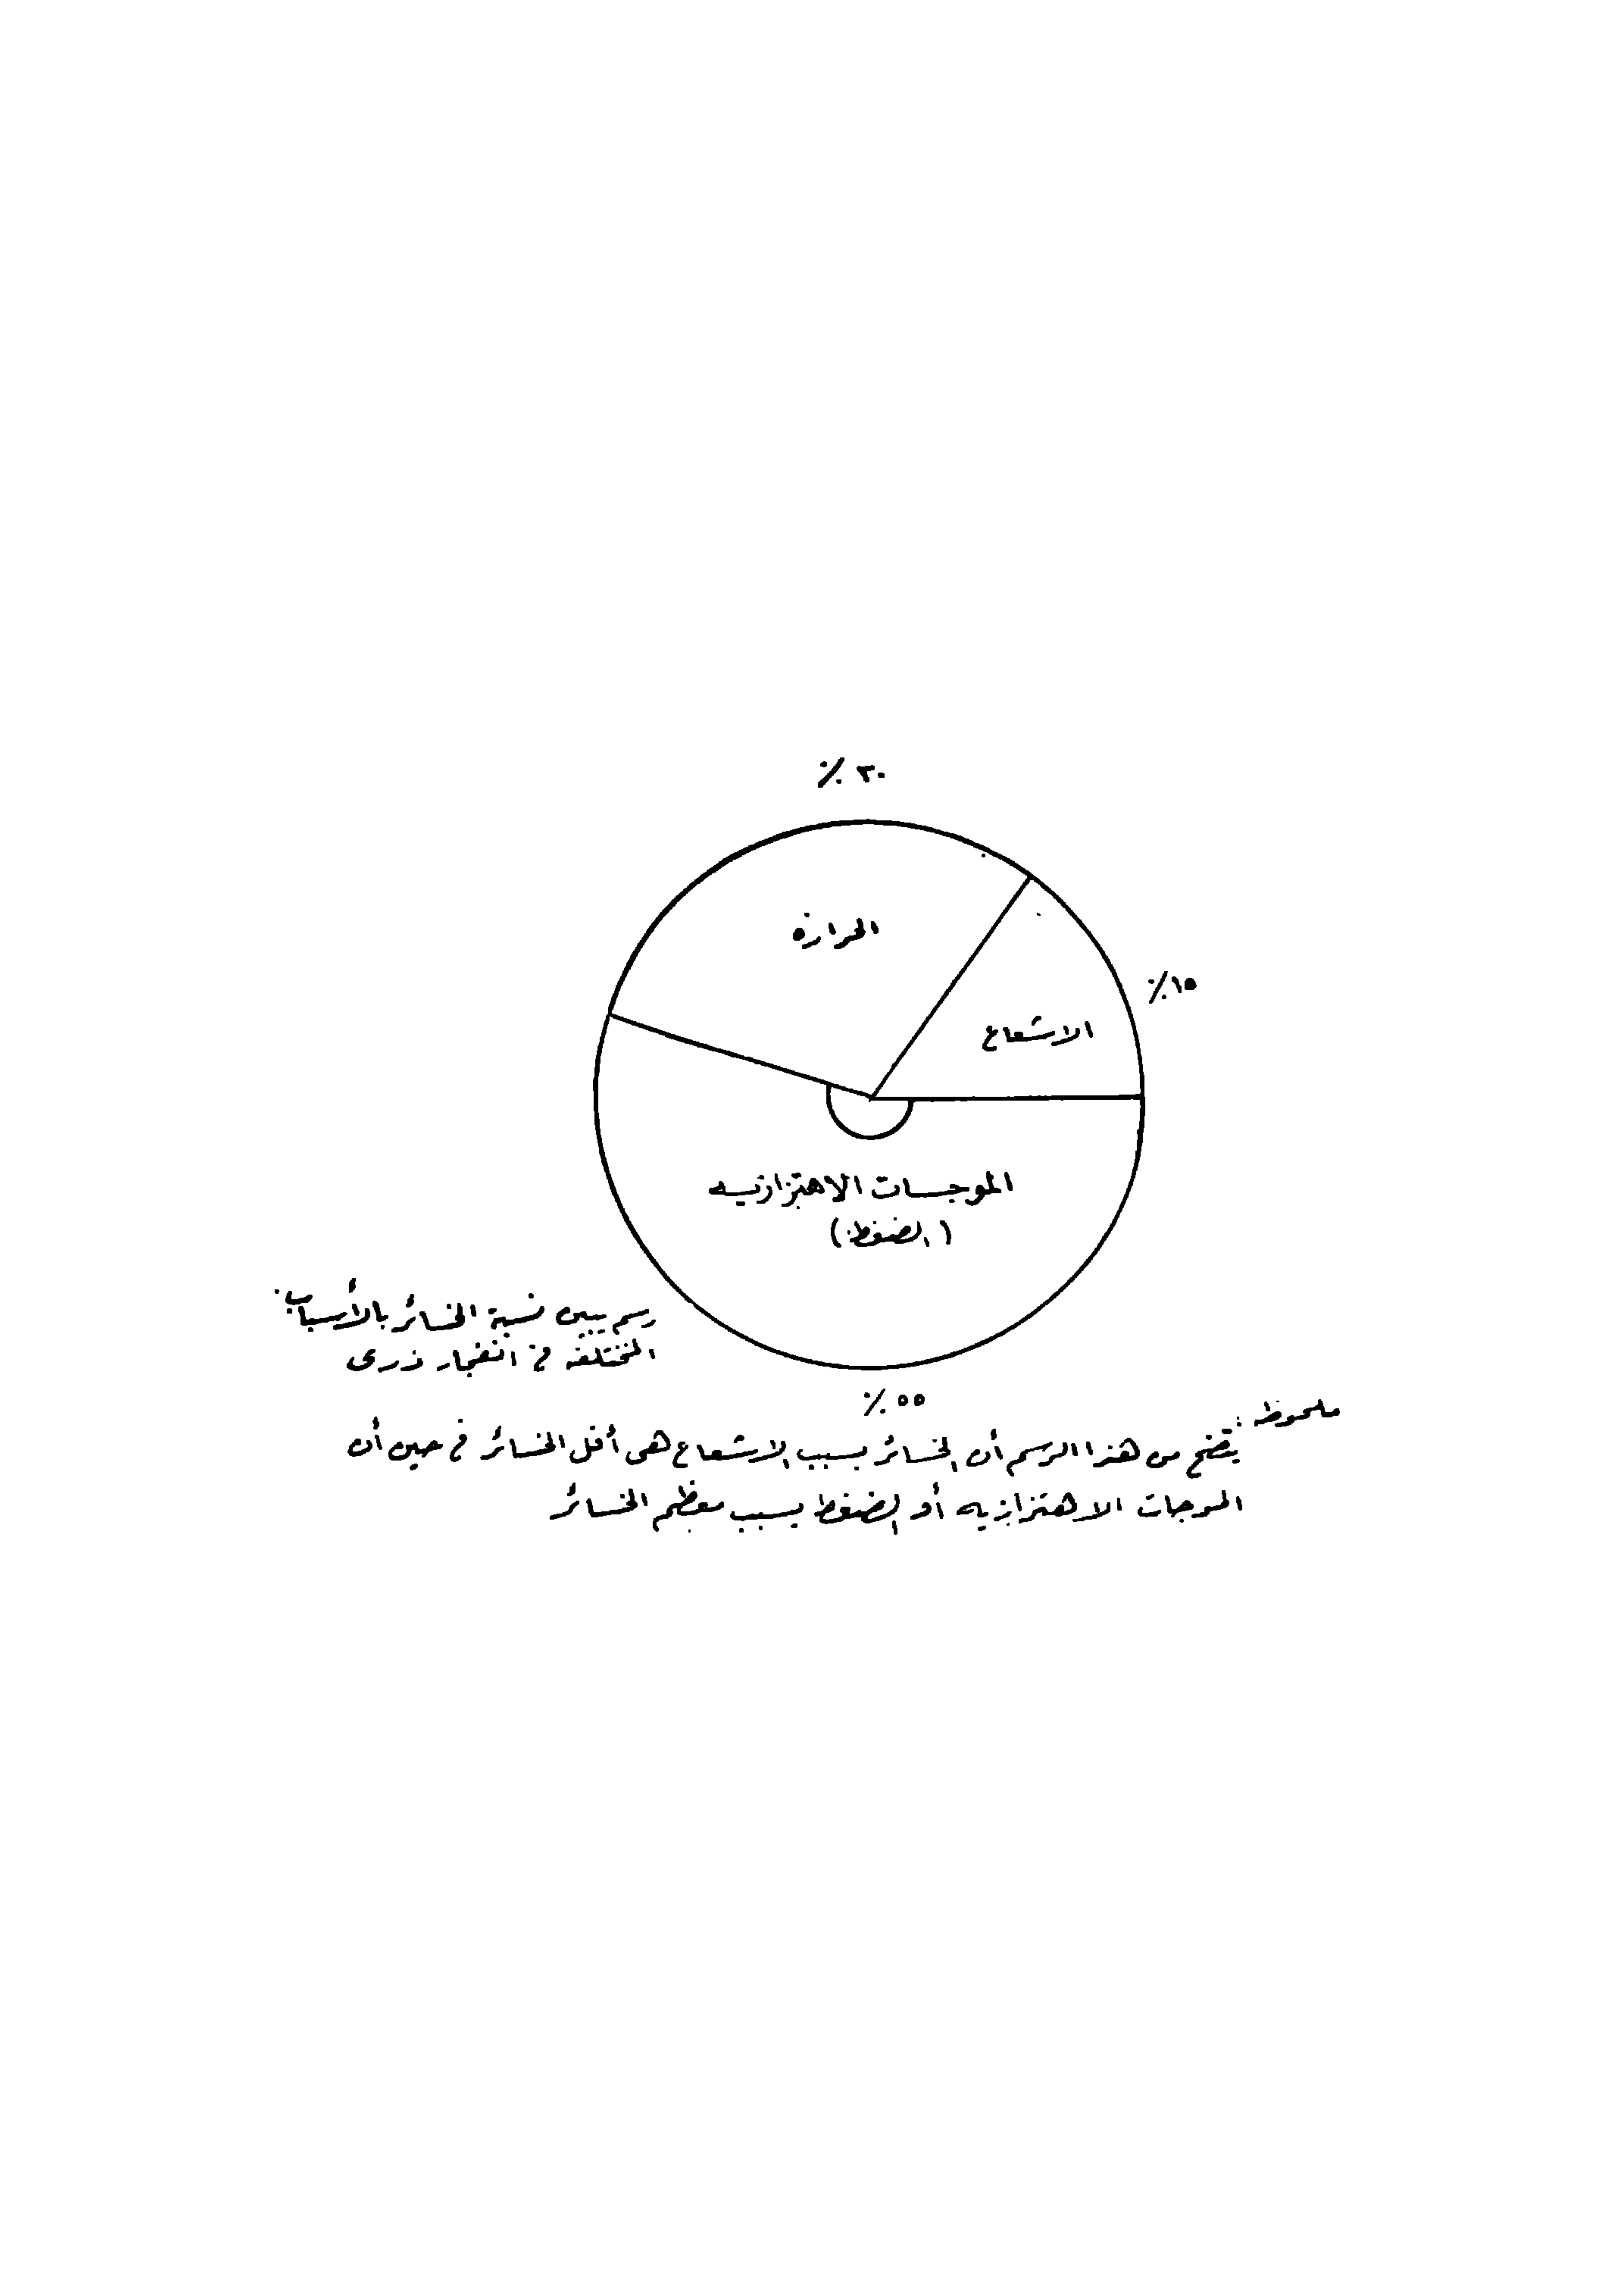 ٣٠ ٪
الحرارة
١٥٪
الاشعاع
الموجات الاهتزازيه
(الضغط)
رسم يبين نسبة الخسائر بالأسباب
المختلفه فى انفجار ذرى
٥٥ ٪
ملحوظه :
يتضح من هذا الرسم أن الخسائر بسبب الاشعاع هى أقل الخسائر فى حين أن
الموجات الاهتزازيه أو الضغط يسبب معظم الخسائر